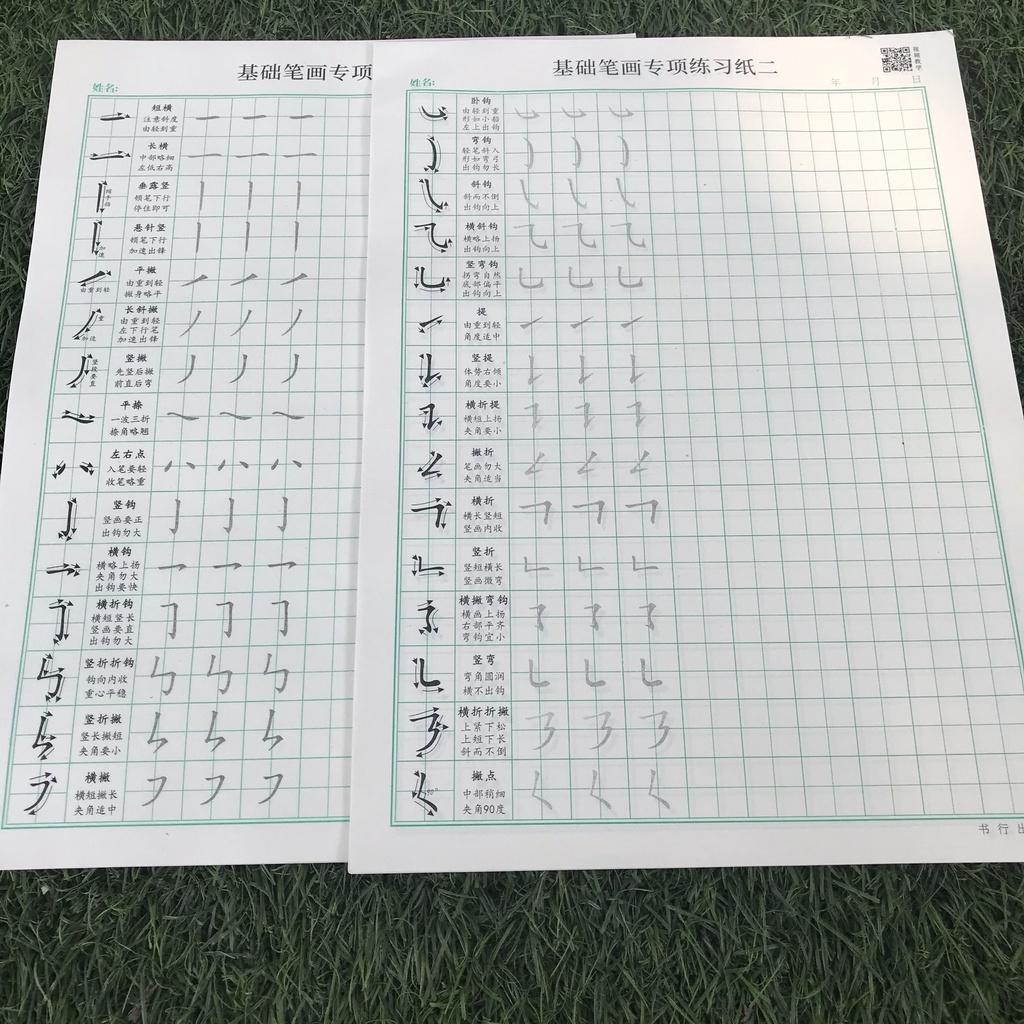 基础笔画专项
姓名:
短横
注意斜度
由轻到重
长横
中部略细
左低右高
垂露竖
顿笔下行
停住即可
悬针竖
顿笔下行
加速出锋
加速
平撇
由重到轻
撇身略平
由重到轻
长斜撇
由重到轻
左下行笔
加速出锋
重
加速
竖撇
先竖后撇
前直后弯
竖段要直
平捺
一波三折
捺角略翘
左右点
入笔要轻
收笔略重
竖钩
竖画要正
出钩勿大
横钩
横略上扬
夹角勿大
出钩要快
横折钩
横短竖长
竖画要直
出钩勿大
竖折折钩
钩向内收
重心平稳
竖折撇
竖长撇短
夹角要小
横撇
横短撇长
夹角适中
基础笔画专项练习纸二
视频教学
姓名:
年 月 日
卧钩
由轻到重
形如小船
左上出钩
弯钩
轻笔斜入
形如弯弓
出钩勿长
斜钩
斜而不倒
出钩向上
横斜钩
横略上扬
出钩向上
竖弯钩
拐弯自然
底部偏平
出钩向上
提
由重到轻
角度适中
竖提
体势右倾
角度要小
横折提
横短上扬
夹角要小
撇折
笔画勿大
夹角适当
横折
横长竖短
竖画内收
竖折
竖短横长
竖画微弯
横撇弯钩
横画上扬
右部平齐
弯钩宜小
竖弯
弯角圆润
横不出钩
横折折撇
上紧下松
上短下长
斜而不倒
撇点
中部稍细
夹角90度
90°
书行出